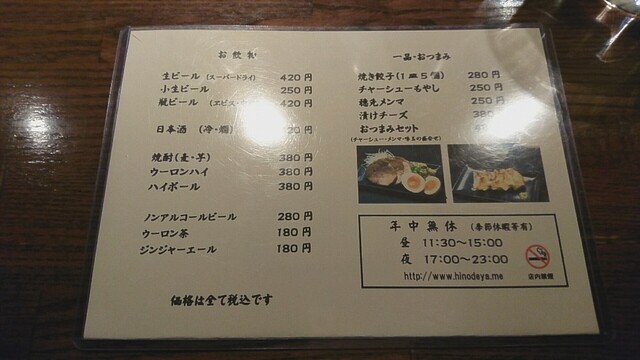 お飲物
生ビール (スーパードライ) 420円
小生ビール 250円
瓶ビール (ヱビス・ 420円
日本酒 (冷・燗) 20円
焼酎(麦・芋) 380円
ウーロンハイ 380円
ハイボール 380円
ノンアルコールビール 280円
ウーロン茶 180円
ジンジャーエール 180円
価格は全て税込です
一品・おつまみ
焼き餃子(1皿5個) 280円
チャーシューもやし 250円
穂先メンマ 250円
漬けチーズ 380
おつまみセット
(チャーシュー・メンマ・味玉の盛合せ)
年中無休 (季節休暇等有)
昼 11:30~15:00
夜 17:00~23:00
http://www.hinodeya.me
店内禁煙